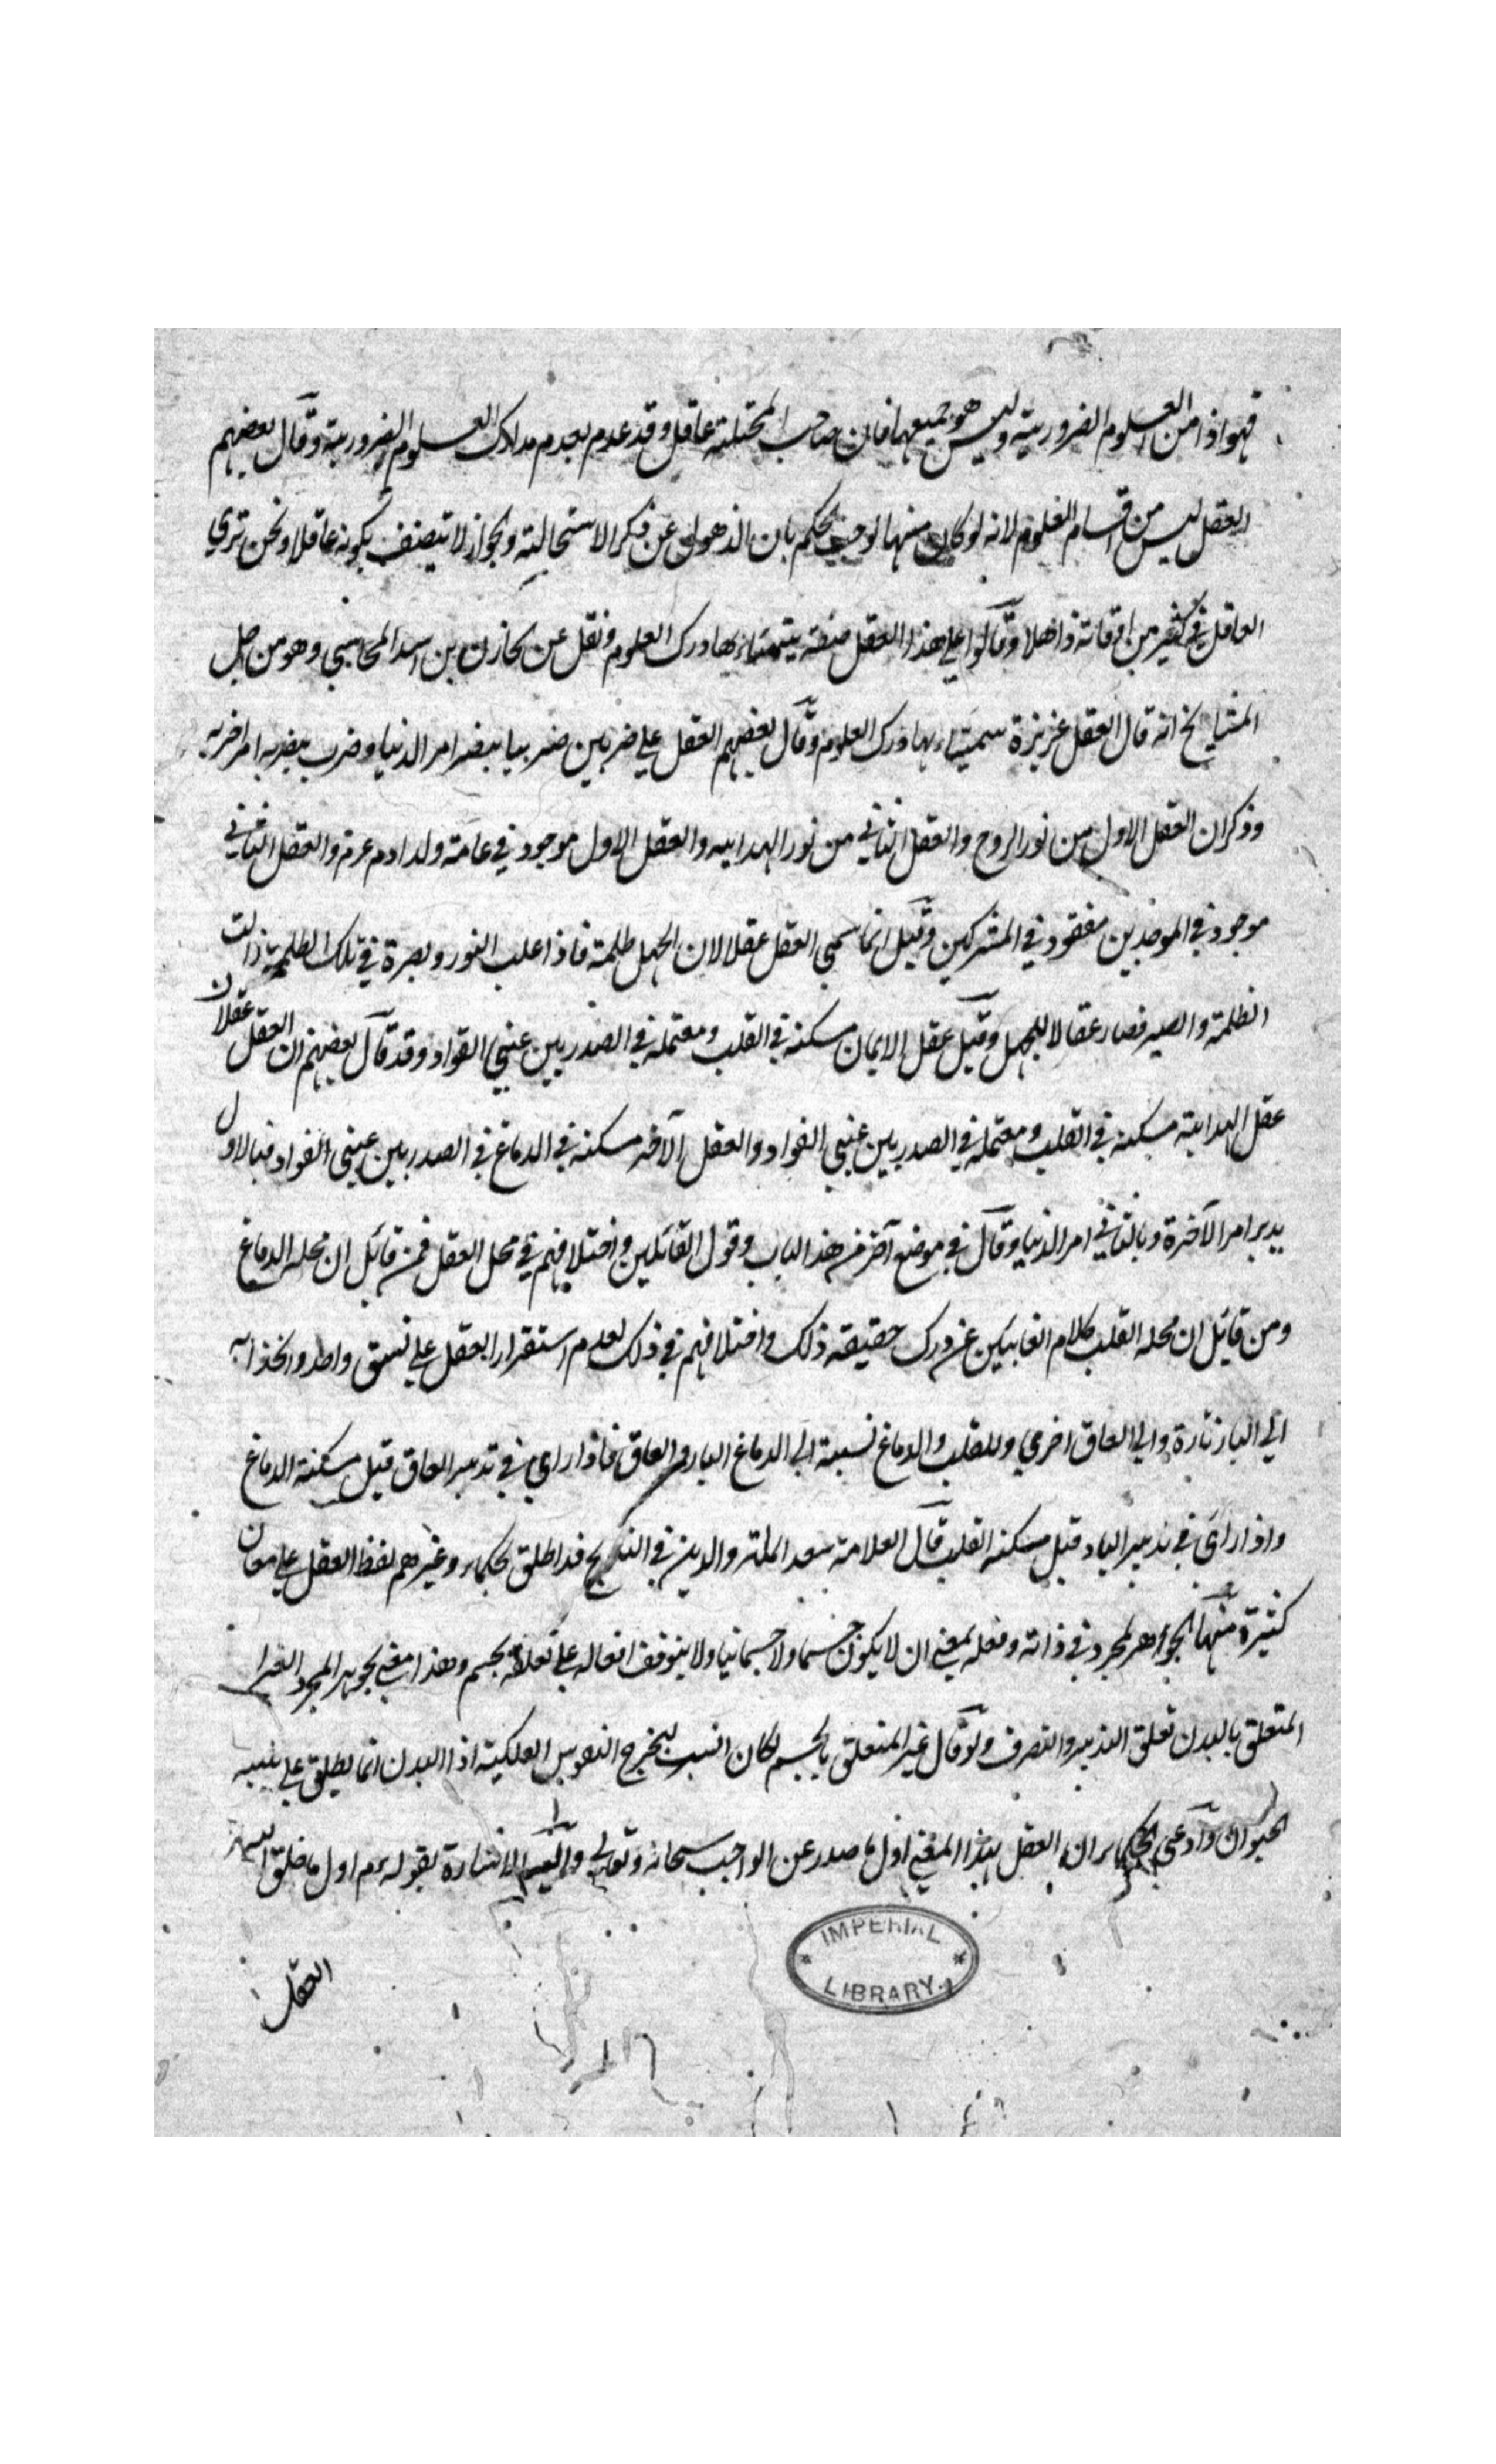 فهو اذا من العلوم الضرورية وليس هو جميعها فان صاحب المختلة عاقل وقد عدم بعدم مدارك العلوم الضرورية وقال بعضهم
العقل ليس من اقسام العلوم لانه لو كان منها لوجب الحكم بان الذهول عن فكر الاستحالية وبجواز لا يتصف بكونه عاقلا ونحن نري
العاقل في كثير من اوقاته ذاهلا وقالوا علي هذا العقل صفة يتهياء بها درك العلوم ونقل عن حارث بن اسد المحاسبي وهو من اجل
المشايخ انه قال العقل غريزة يتهياء بها درك العلوم وقال بعضهم العقل علي ضربين ضرب يبصر امر الدنيا وضرب يبصر به امر اخرته
وذكر ان العقل الاول من نور الروح والعقل الثاني من نور الهداية والعقل الاول موجود في عامة ولد ادم عرم والعقل الثاني
موجود في الموحدين مفقود في المشركين وقيل انما سمي العقل عقلا لان الجهل ظلمة فاذا غلب النور وبصره في تلك الظلمة زالت
الظلمة والصير فصار عقالا للجهل وقيل عقل الايمان مسكنه في القلب ومعتمله في الصدر بين عيني الفواد وقد قال بعضهم ان العقل عقلان
عقل الهداية مسكنه في القلب ومعتمله في الصدر بين عيني الفواد والعقل الآخر مسكنه في الدماغ في الصدر بين عيني الفواد فبالاول
يدبر امر الآخرة وبالثاني امر الدنيا وقال في موضع آخر من هذا الباب وقول القائلين واختلافهم في محل العقل فمن قائل ان محله الدماغ
ومن قائل ان محله القلب كلام الغائبين عن درك حقيقة ذلك واختلافهم في ذلك لعدم استقرار العقل علي نسق واحد وانجذابه
الي البار تارة والي العاق اخري وللقلب والدماغ نسبة الي الدماغ البار والعاق فاذا راي في تدبير العاق قيل مسكنه الدماغ
واذا راي في تدبير البار قيل مسكنه القلب قال العلامة سعد الملة والدين في التلويح قد اطلق الحكماء وغيرهم لفظ العقل علي معان
كثيرة منها الجواهر المجرد في ذاته وفعله بمعني ان لا يكون جسما ولا جسمانيا ولا يتوقف افعاله علي تعلقه بجسم وهذا معني الجوهر المجرد الغير
المتعلق بالبدن تعلق التدبير والتصرف ولو قال غير المتعلق بالجسم لكان انسب ليخرج النفوس الفلكية اذ البدن انما يطلق علي بنية
الحيوان وادعي الحكماء ان العقل بهذا المعني اول ما صدر عن الواجب سبحانه وتعالي واليه الاشارة بقوله عم اول ما خلق الله
العقل
IMPERIAL
LIBRARY